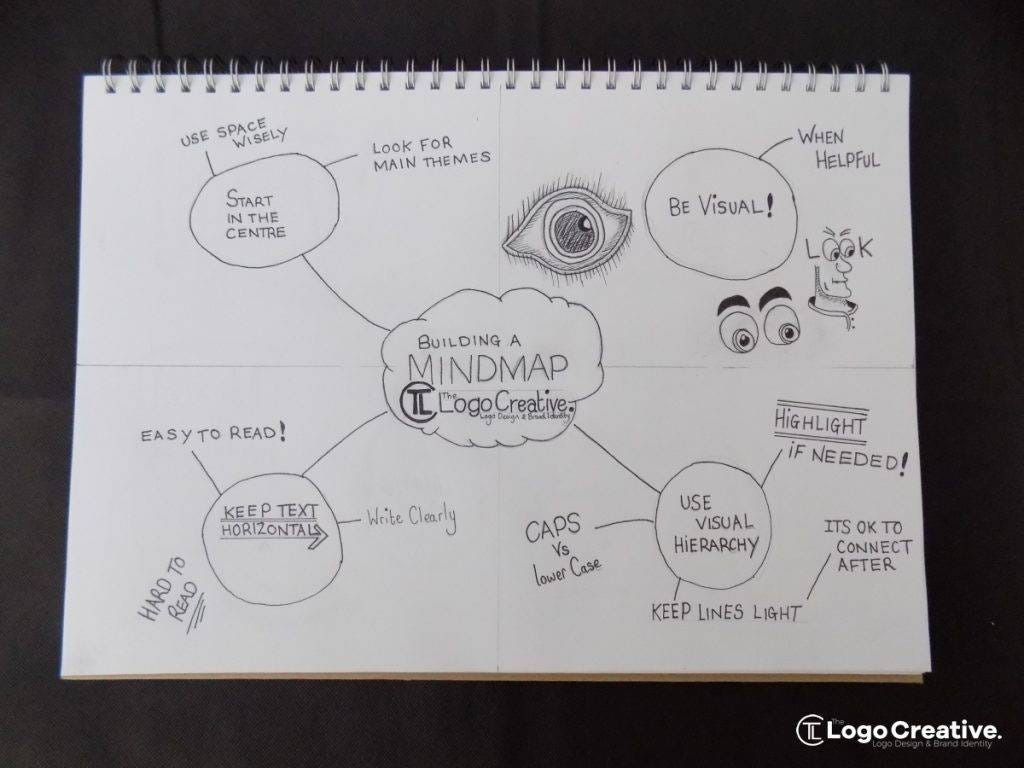 USE SPACE
WISELY
LOOK FOR
MAIN THEMES
START
IN THE
CENTRE
WHEN
HELPFUL
BE VISUAL!
LOOK
BUILDING A
MINDMAP
TL The
Logo Creative.
Logo Design & Brand Identity
EASY TO READ!
KEEP TEXT
HORIZONTAL
Write Clearly
HARD TO
READ
HIGHLIGHT
iF NEEDED!
USE
VISUAL
HiERARCHY
CAPS
Vs
lower Case
ITS OK TO
CONNECT
AFTER
KEEP LINES LIGHT
TL The
Logo Creative.
Logo Design & Brand Identity